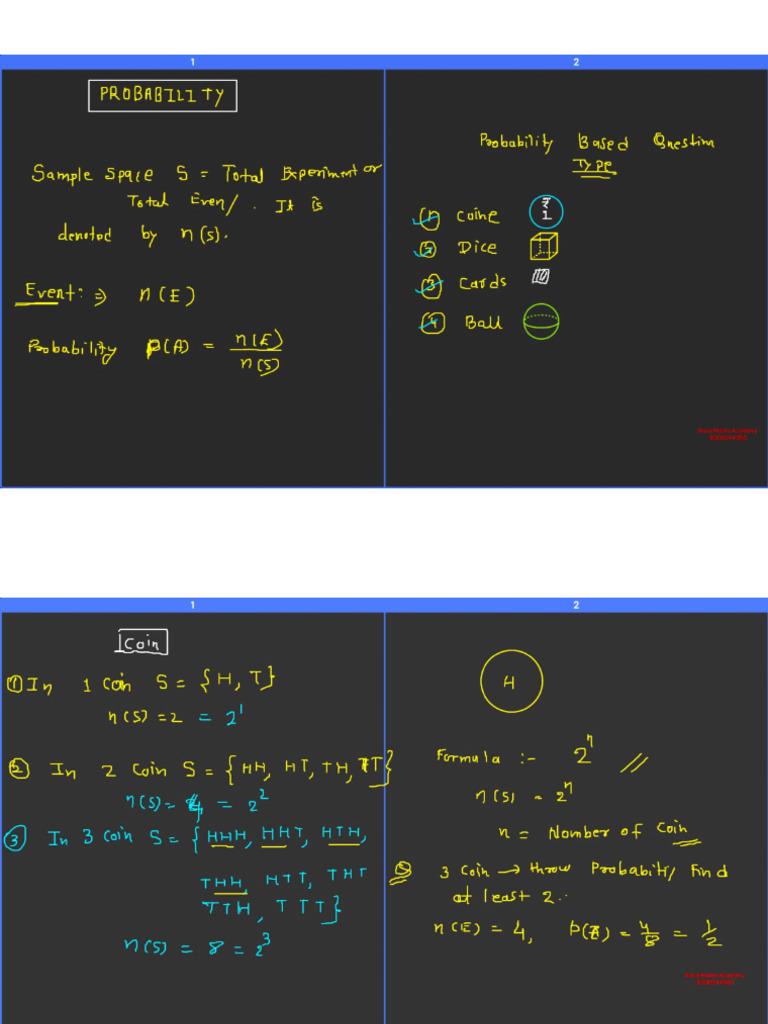 1
PROBABILITY
Sample Space S = Total Experiment or
Total Even/. It is
denoted by n(S).
Event: ⇒ n(E)
Probability P(A) = n(E)/n(S)
2
Probability Based Question
Type
① Coine ₹ 1
② Dice
③ Cards
④ Ball
1
Coin
① In 1 Coin S = {H, T}
n(S) = 2 = 2¹
② In 2 Coin S = {HH, HT, TH, TT}
n(S) = 4 = 2²
③ In 3 Coin S = {HHH, HHT, HTH,
THH, HTT, THT
TTH, TTT}
n(S) = 8 = 2³
2
H
Formula :- 2ⁿ //
n(S) = 2ⁿ
n = Nomber of Coin
3 Coin → throw Probabilit/ Find
at least 2..
n(E) = 4, P(E) = 4/8 = 1/2